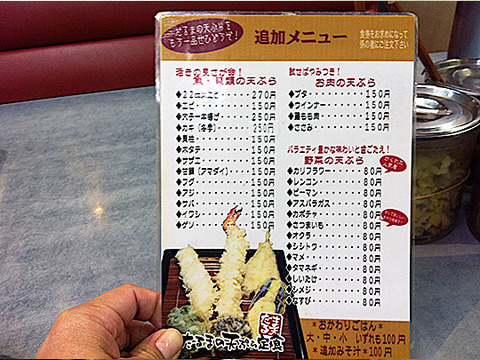 だるまの天ぷらを
もう一品ぜひどうぞ!
追加メニュー
食券をお求めになって
係の者にご注文下さい
活きの良さが命!
魚・貝類の天ぷら
エビ 150円
穴子一本揚げ 250円
カキ(冬季) 250円
貝柱 150円
ホタテ 150円
サザエ 150円
甘鯛(アマダイ) 150円
フグ 150円
アジ 150円
サバ 150円
イワシ 150円
ゲソ 150円
試せばやみつき!
お肉の天ぷら
ブタ 150円
ウインナー 150円
鶏もも肉 150円
ささみ 150円
バラエティ豊かな味わいと歯ごたえ!
野菜の天ぷら
かくれた
人気者
カリフラワー 80円
レンコン 80円
ピーマン 80円
アスパラガス 80円
カボチャ 80円
さつまいも 80円
オクラ 80円
シシトウ 80円
マメ 80円
タマネギ 80円
しいたけ 80円
シメジ 80円
なすび 80円
だるまの天ぷら定食
*おかわりごはん*
大・中・小 いずれも100円
*追加みそ汁*100円